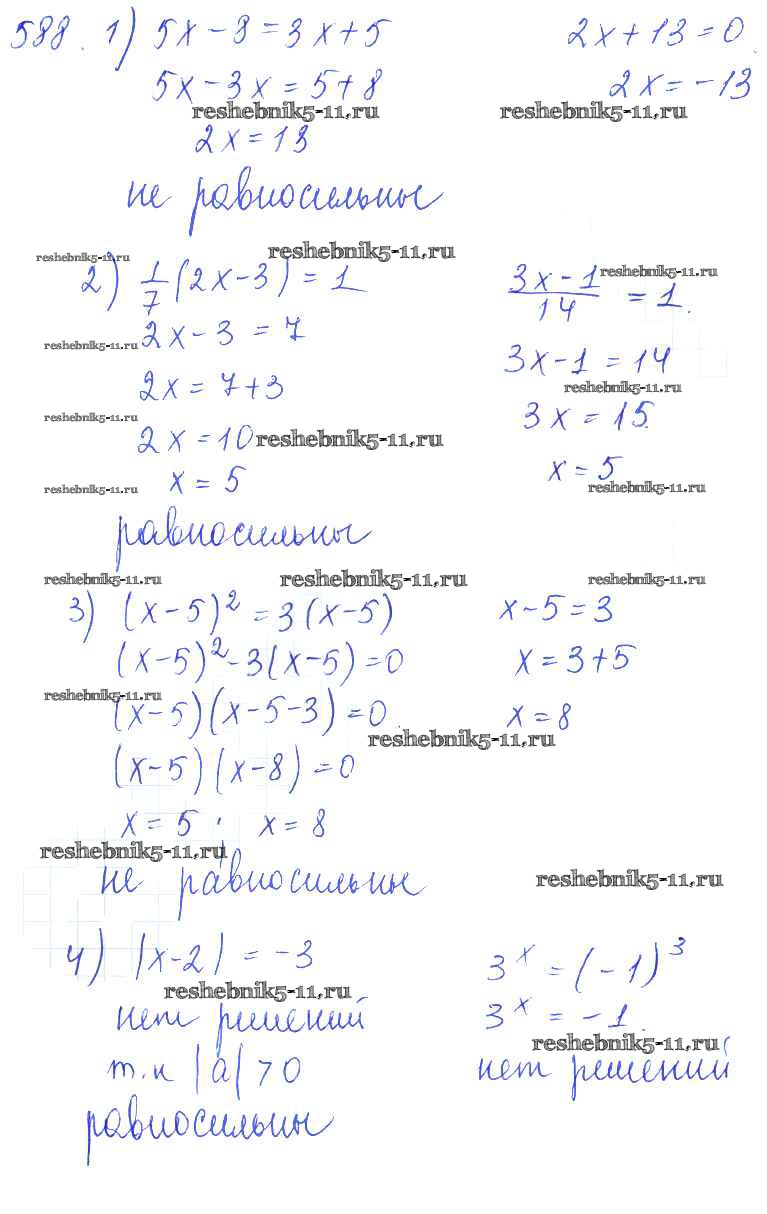 588. 1) 5x-8=3x+5 2x+13=0
5x-3x=5+8 2x=-13
reshebnik5-11.ru reshebnik5-11.ru
2x=13
не равносильны
reshebnik5-11.ru reshebnik5-11.ru
2) 1/7 (2x-3) = 1 (3x-1)/14 = 1. reshebnik5-11.ru
reshebnik5-11.ru 2x-3 = 7 3x-1 = 14
2x = 7+3 reshebnik5-11.ru
reshebnik5-11.ru 3x = 15.
2x = 10 reshebnik5-11.ru
reshebnik5-11.ru x = 5 x = 5 reshebnik5-11.ru
равносильны
reshebnik5-11.ru reshebnik5-11.ru reshebnik5-11.ru
3) (x-5)² = 3(x-5) x-5=3
(x-5)²-3(x-5)=0 x=3+5
reshebnik5-11.ru
(x-5)(x-5-3)=0. x=8
reshebnik5-11.ru
(x-5)(x-8)=0
x=5, x=8
reshebnik5-11.ru
не равносильны reshebnik5-11.ru
4) |x-2| = -3 3ˣ = (-1)³
reshebnik5-11.ru
нет решений 3ˣ = -1.
reshebnik5-11.ru
т.к |a| >0 нет решений
равносильны